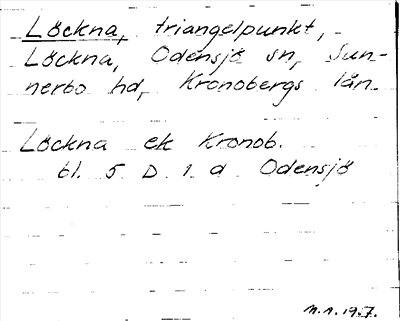 Löckna, triangelpunkt,
Löckna, Odensjö sn, Sun-
nerbo hd, Kronobergs län.
Löckna ek Kronob.
bl. 5 D 1 d Odensjö